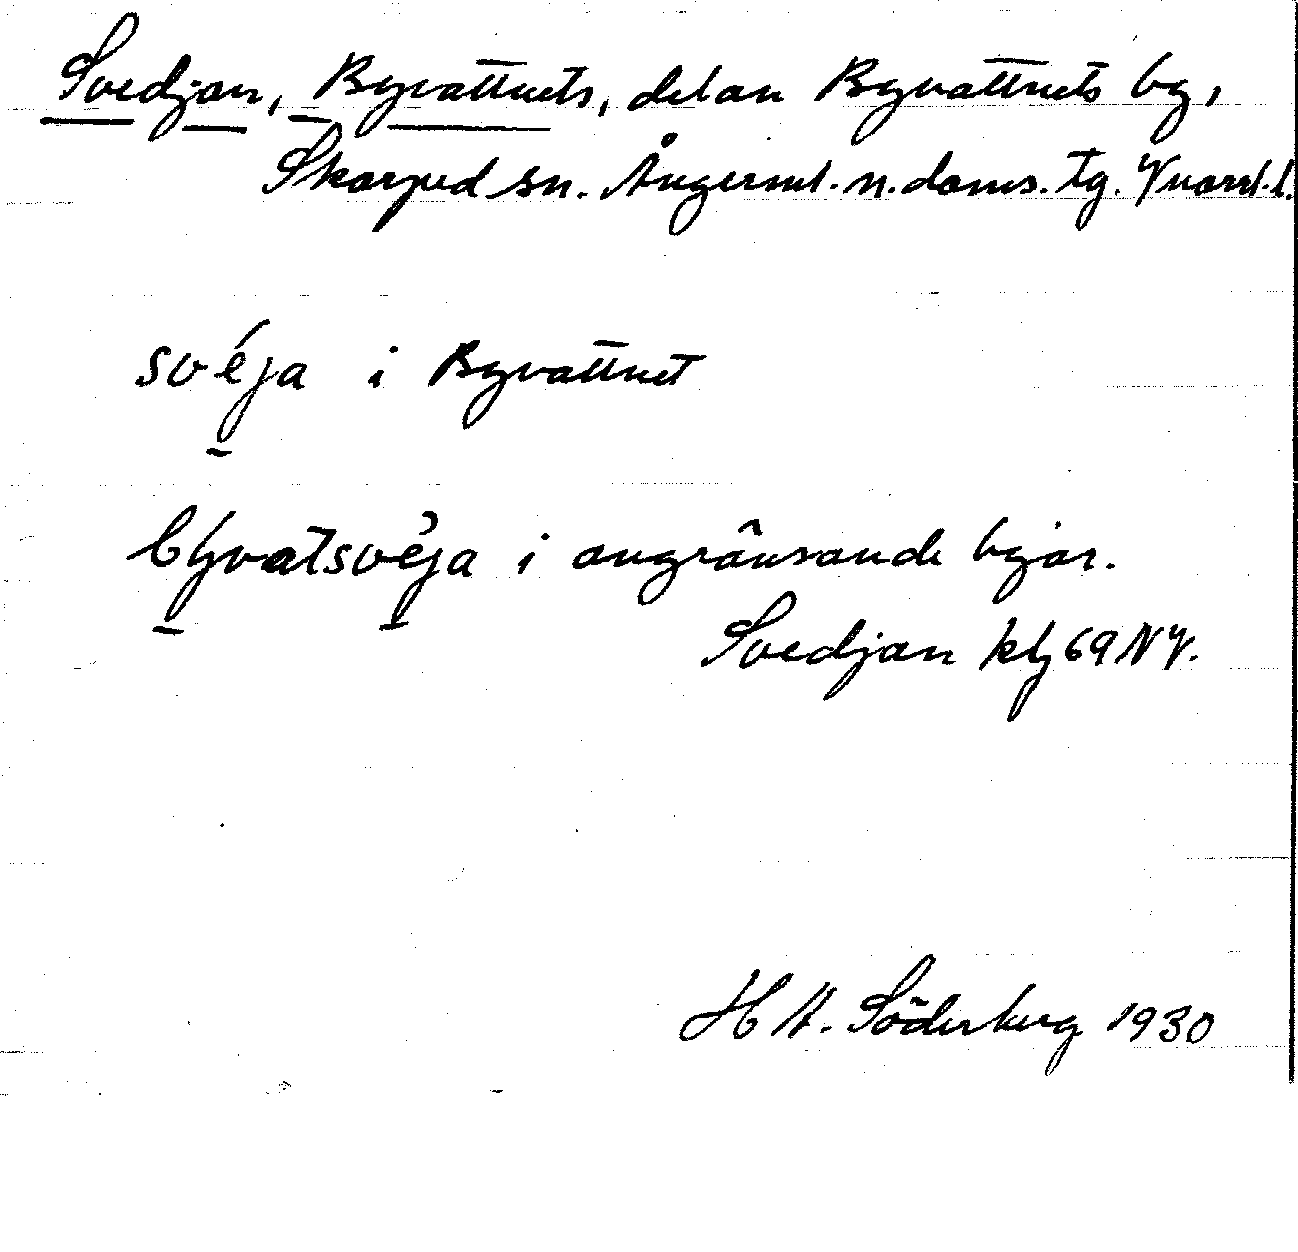 Svedjan, Byvattnets, del av Byvattnets by,
Skorped sn. Ångerml. n. doms. tg. Västernorrl. l.
svéja i Byvattnet
byvatsvéja i angränsande byar.
Svedjan kbl 69 NV.
H A. Söderberg 1930